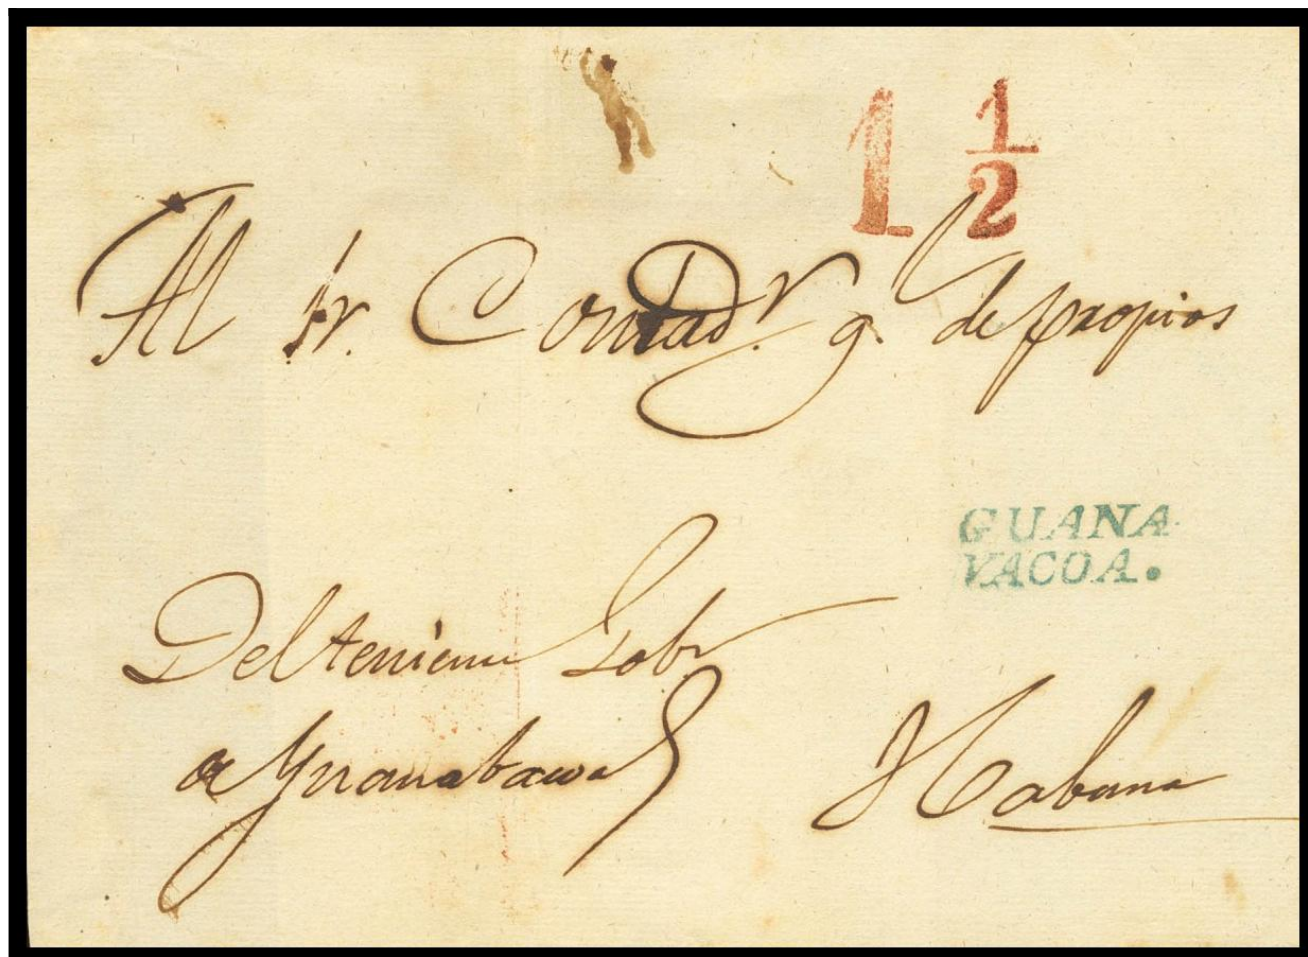 1 1/2
Al Sr. Contadr. g. de propios
GUANA
VACOA.
Del teniente Gobr
de Guanabacoa
Habana